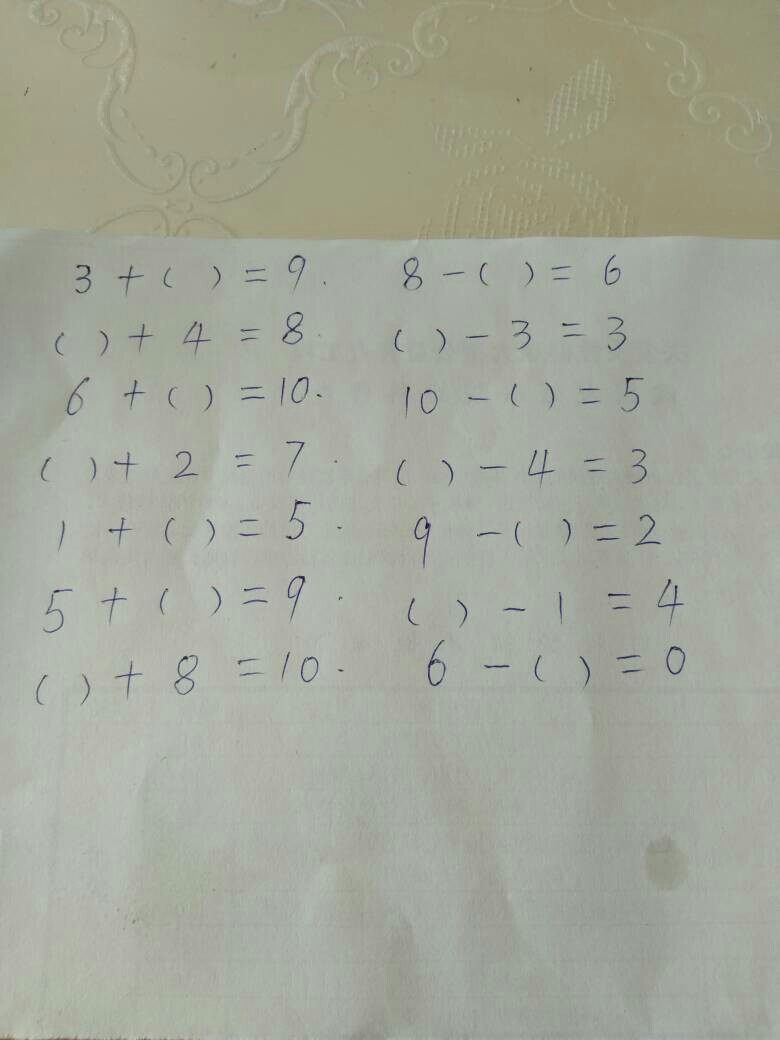 3 + ( ) = 9. 8 - ( ) = 6
( ) + 4 = 8. ( ) - 3 = 3
6 + ( ) = 10. 10 - ( ) = 5
( ) + 2 = 7. ( ) - 4 = 3
1 + ( ) = 5. 9 - ( ) = 2
5 + ( ) = 9. ( ) - 1 = 4
( ) + 8 = 10. 6 - ( ) = 0